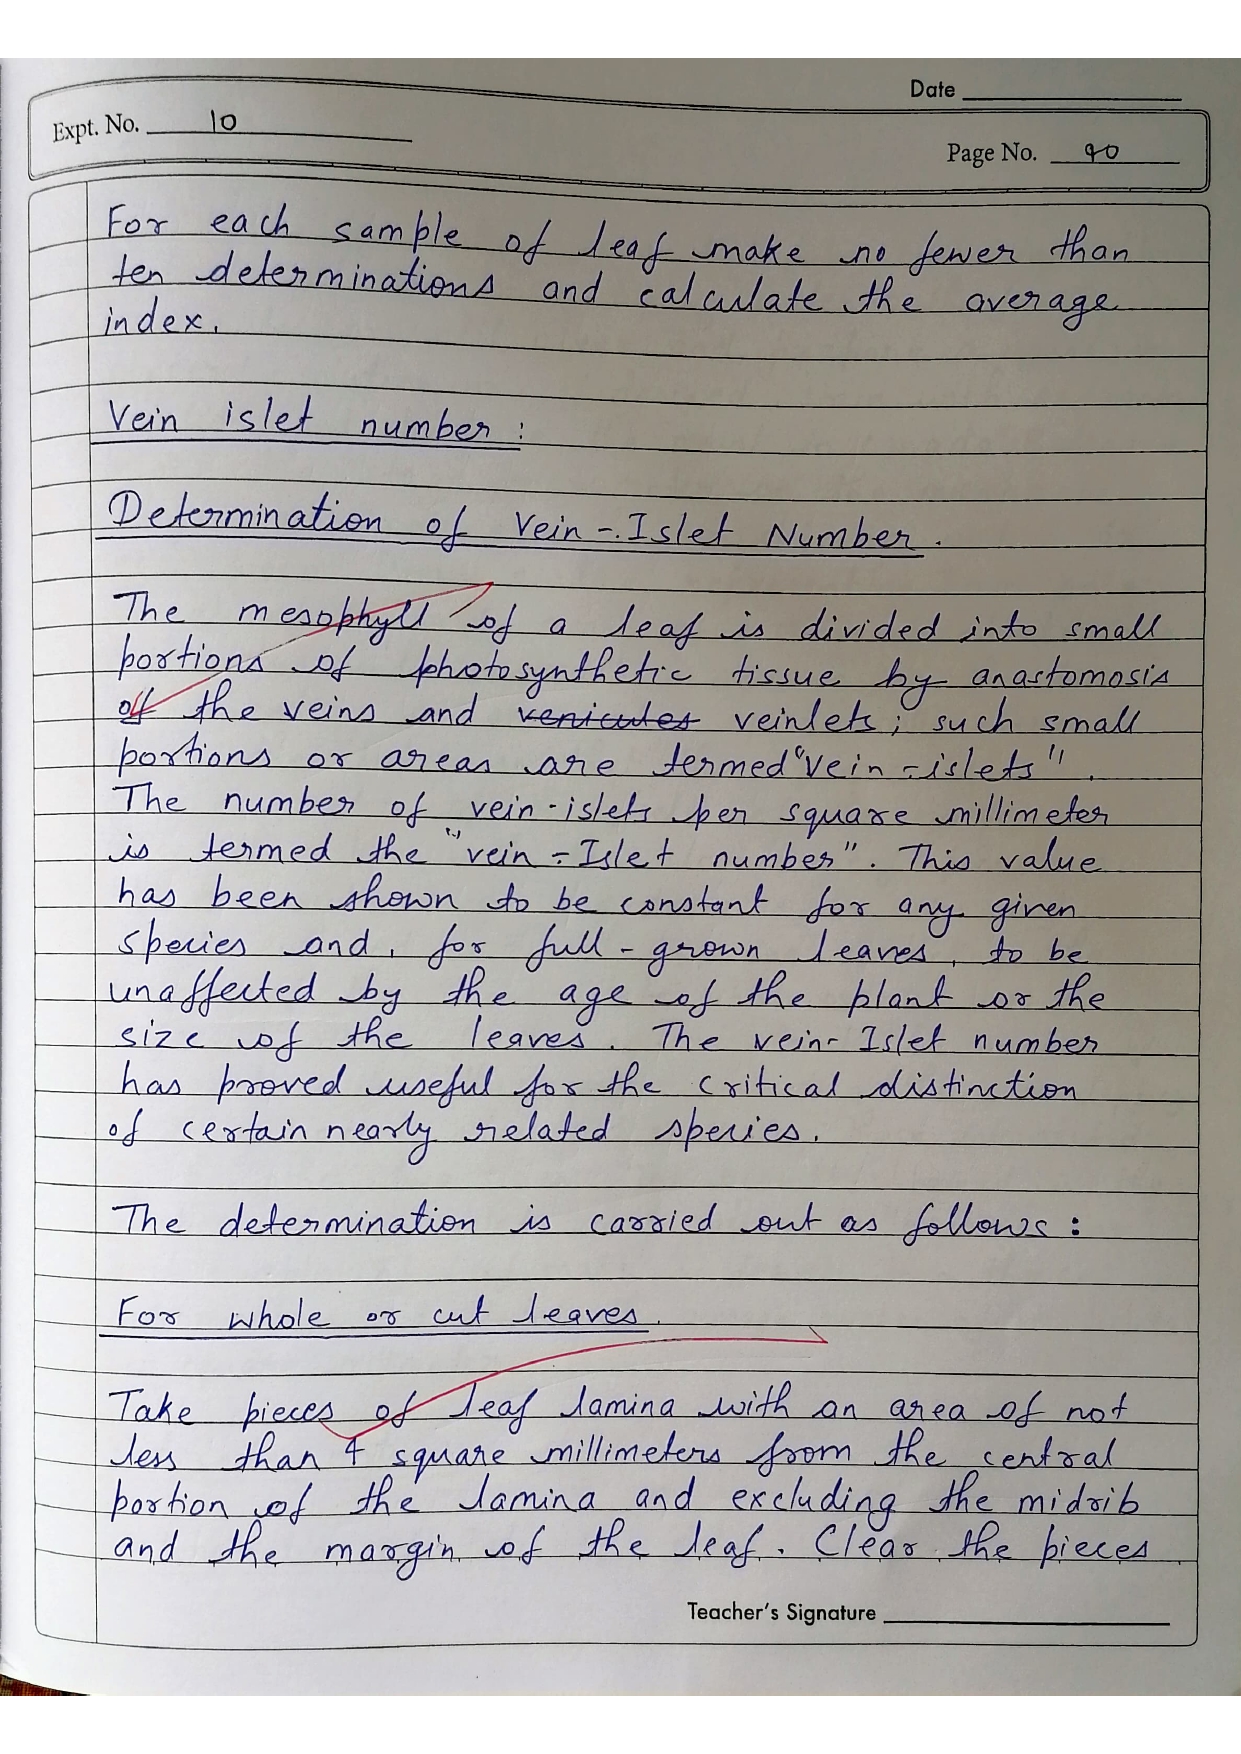 Date
Expt. No. 10
Page No. 90
For each sample of leaf make no fewer than
ten determinations and calculate the average
index.
Vein islet number :
Determination of Vein-Islet Number.
The mesophyll of a leaf is divided into small
portions of photosynthetic tissue by anastomosis
of the veins and venicules veinlets; such small
portions or areas are termed "vein-islets".
The number of vein-islets per square millimeter
is termed the "vein-Islet number". This value
has been shown to be constant for any given
species and, for full-grown leaves, to be
unaffected by the age of the plant or the
size of the leaves. The vein-Islet number
has proved useful for the critical distinction
of certain nearly related species.
The determination is carried out as follows :
For whole or cut leaves.
Take pieces of leaf lamina with an area of not
less than 4 square millimeters from the central
portion of the lamina and excluding the midrib
and the margin of the leaf. Clear the pieces
Teacher's Signature